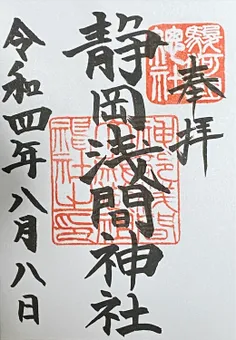 奉拝
静岡浅間神社
令和四年八月八日